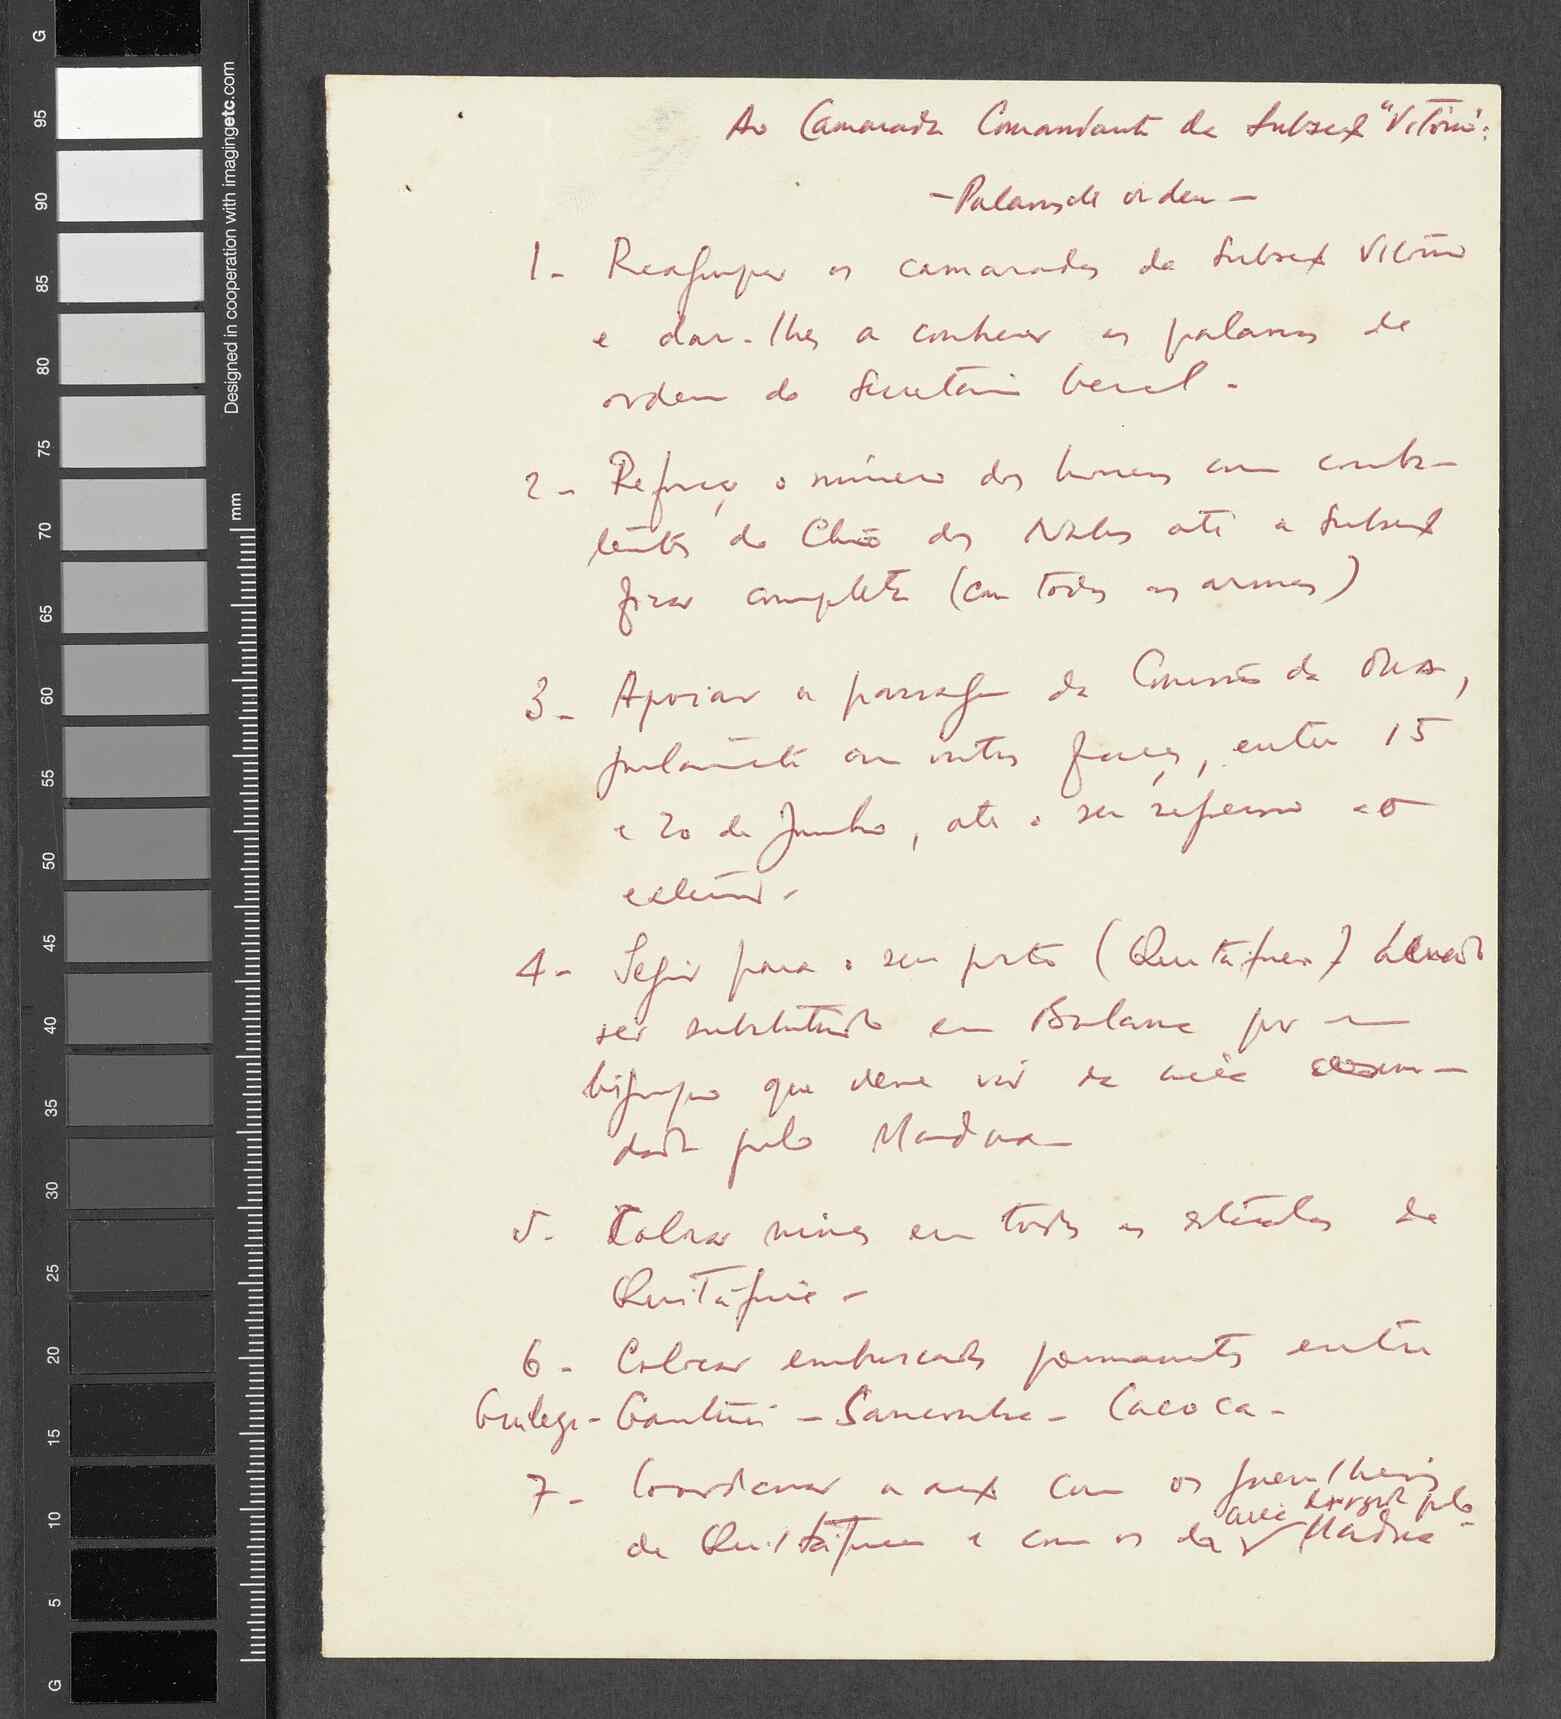 Ao Camarada Comandante da Subsect "Vitório":
- Palavras de ordem -
1 - Reagrupar os camaradas da Subsect Vitório
e dar-lhes a conhecer as palavras de
ordem do Secretário Geral -
2 - Reforçar o número dos homens com comba-
tentes do Chão dos Nalus até a Subsect
ficar completa (com todas as armas)
3 - Apoiar a passagem da Comissão da ONU,
juntamente com outras forças, entre 15
e 20 de Junho, até o seu regresso ao
exterior -
4 - Seguir para o seu posto (Quitáfine) devendo
ser substituído em Balana por um
bigrupo que deve vir da área coman-
dada pelo
5 - Colocar minas em todas as estradas de
Quitáfine -
6 - Colocar emboscadas permanentes entre
Gadamael - Ganturé - Sangonha - Cacoca -
7 - Coordenar a acç com os guerrilheiros
de Quitáfine e com os da área dirigida pelo
G
95
90
85
80
75
70
65
60
55
50
45
40
35
30
25
20
15
10
5
G
mm
Designed in cooperation with imagingetc.com